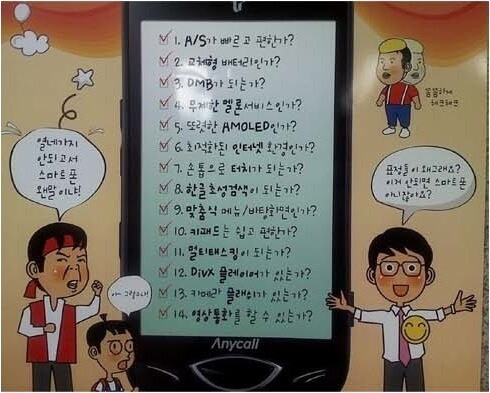 1. A/S가 빠르고 편한가?
2. 교체형 배터리인가?
3. DMB가 되는가?
4. 무제한 멜론서비스인가?
5. 또렷한 AMOLED인가?
6. 최적화된 인터넷 환경인가?
7. 손톱으로 터치가 되는가?
8. 한글초성검색이 되는가?
9. 맞춤식 메뉴/바탕화면인가?
10. 키패드는 쉽고 편한가?
11. 멀티태스킹이 되는가?
12. DivX 플레이어가 있는가?
13. 카메라 플래쉬가 있는가?
14. 영상통화를 할 수 있는가?
Anycall
열네가지
안되고서
스마트폰
왠말이냐!
아~그렇구나!
꼼꼼하게
체크체크
표정들이 왜그래요?
이거 안되면 스마트폰
아니잖아요?